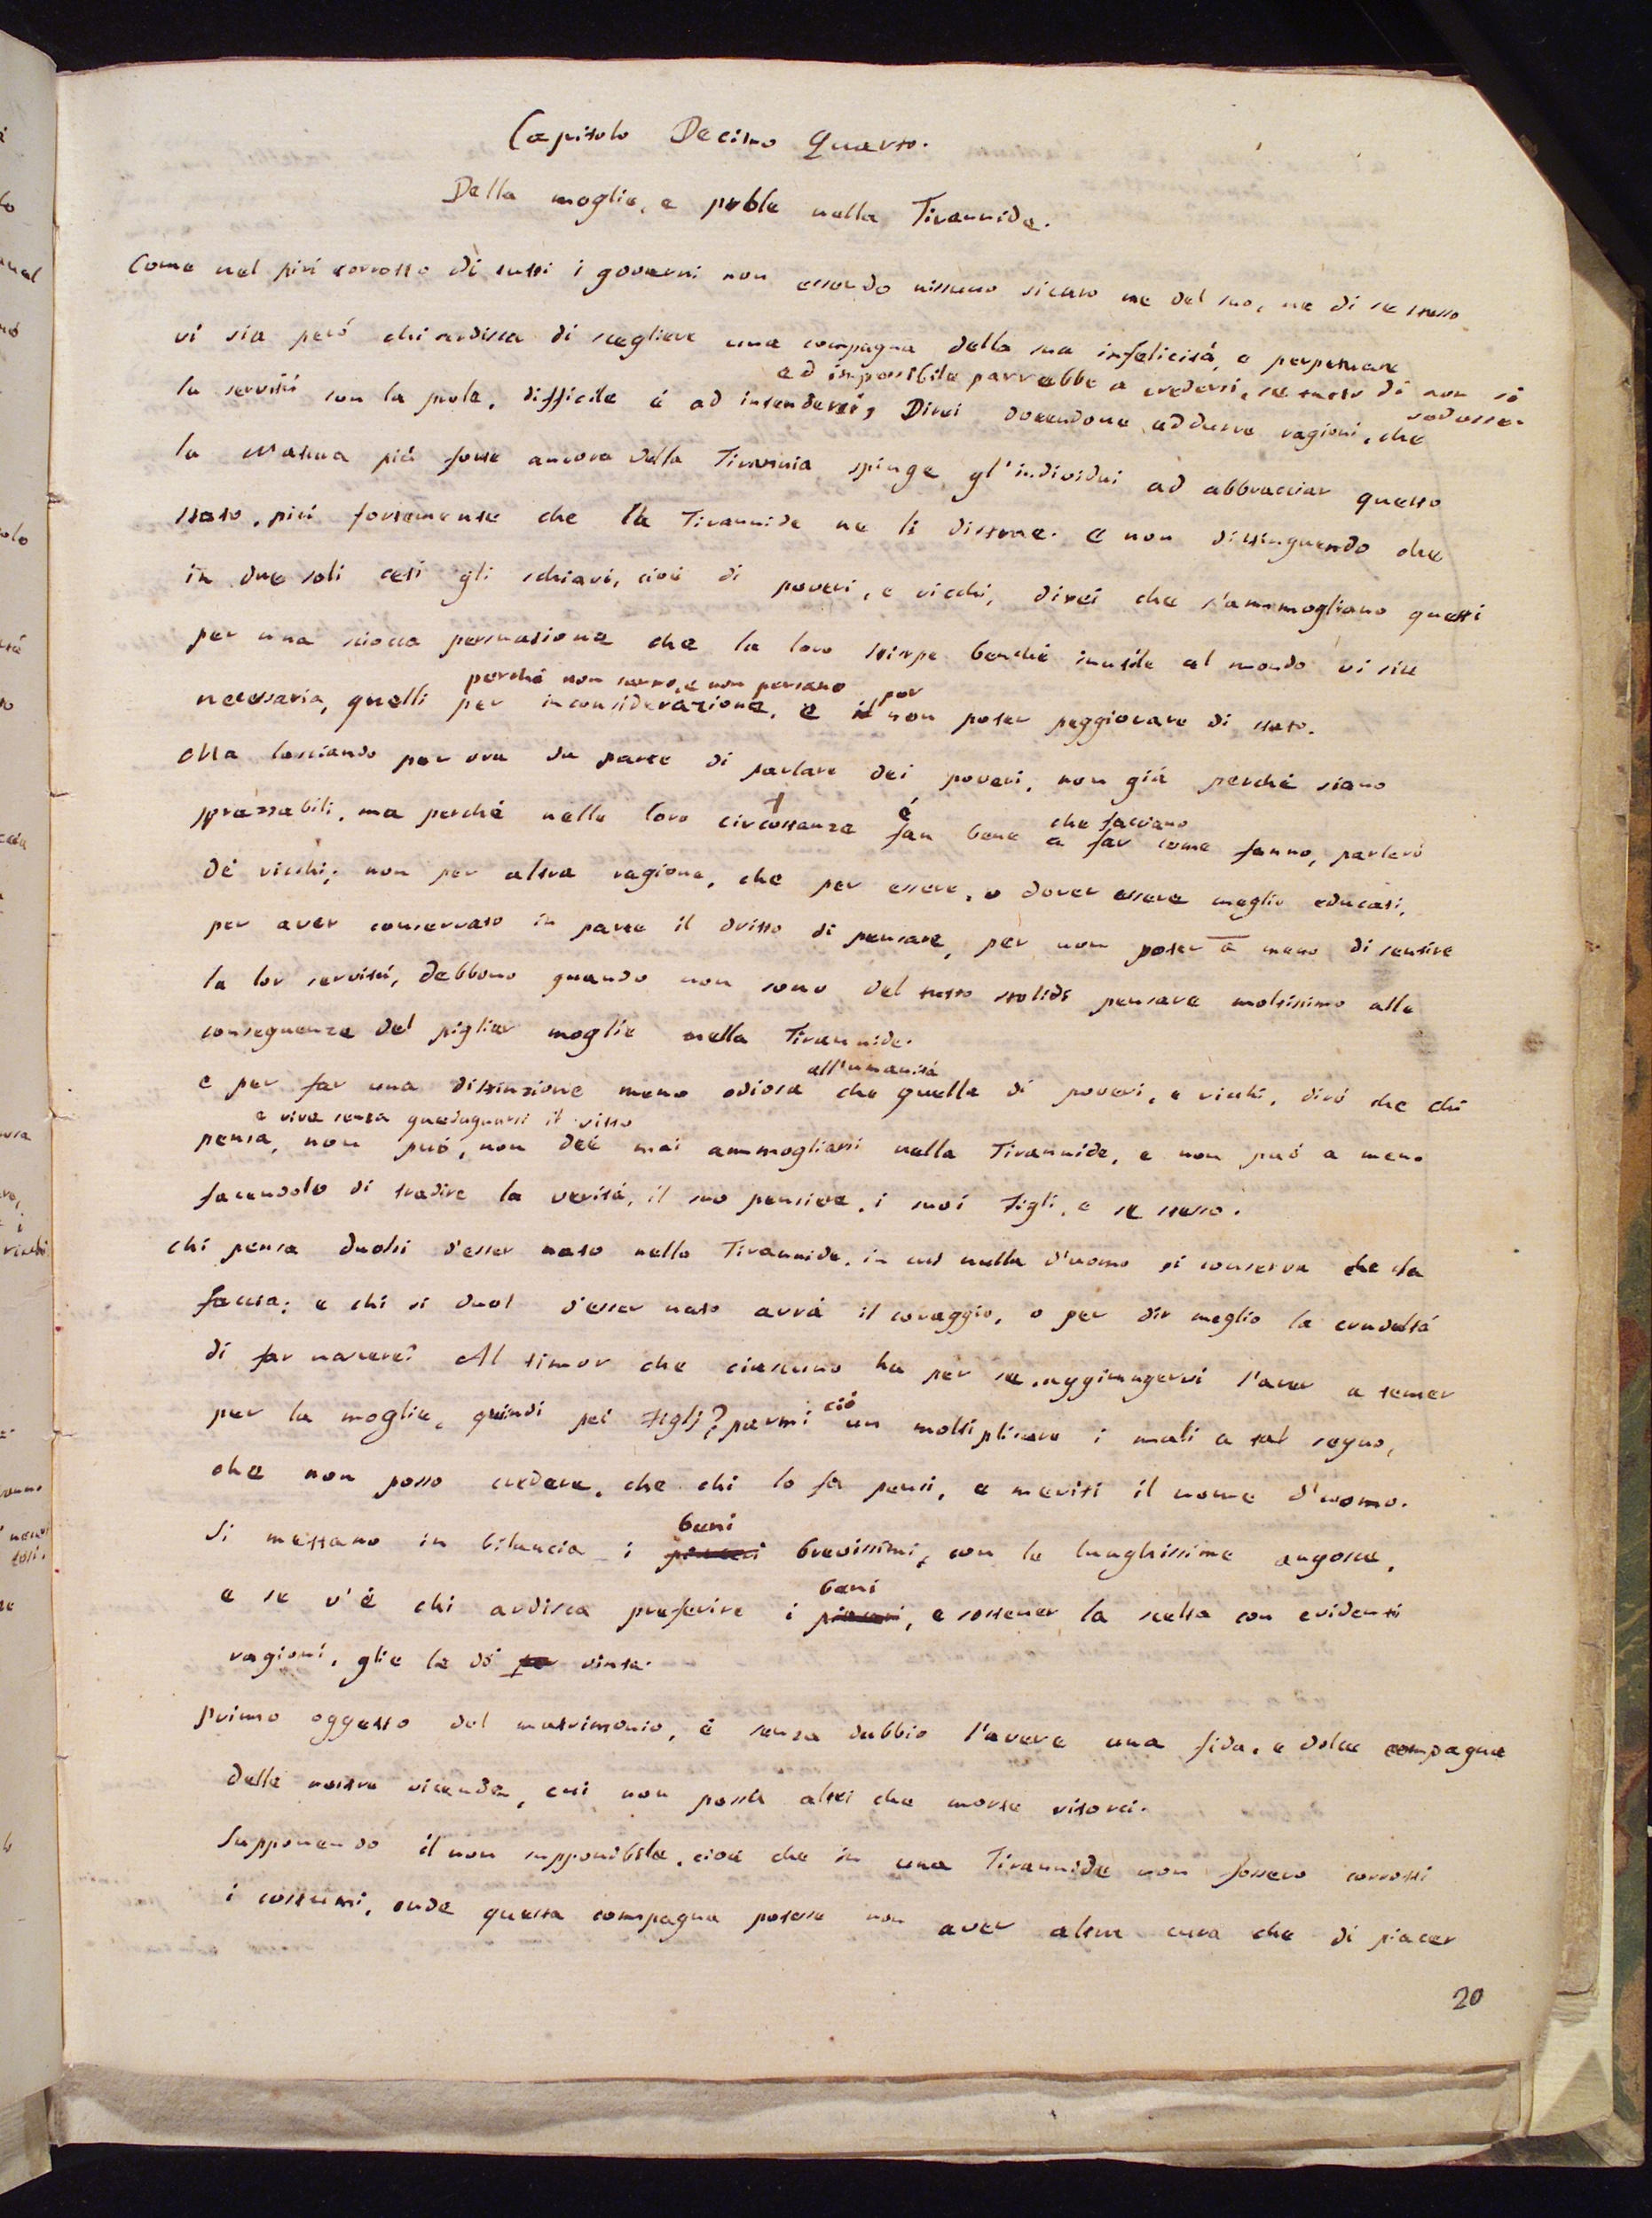 Capitolo Decimo Quarto.
Della moglie, e prole nella Tirannide.
Come nel più corrotto di tutti i governi non essendo nissuno sicuro ne del suo, ne di se stesso
vi sia però chi ardisca di scegliere una compagna della sua infelicità, e perpetuare
ed impossibile parrebbe a credersi, se tutto dì non si vedesse.
la servitù con la prole, difficile è ad intendersi, Direi dovendone addurre ragioni, che
la Natura più forte ancora della Tirannia spinge gl'individui ad abbracciar questo
stato, più fortemente che la Tirannide ne li distrae. e non distinguendo che
in due soli ceti gli schiavi, cioè di poveri, e ricchi, direi che s'ammogliano questi
per una sciocca persuasione che la loro stirpe benchè inutile al mondo vi sia
perchè non sanno, e non pensano per
necessaria, quelli per inconsiderazione, e il non poter peggiorare di stato.
Ma lasciando per ora da parte di parlare dei poveri, non già perchè siano
sprezzabili, ma perchè nelle loro circostanze fan bene a far come fanno, parlerò
è che facciano
de' ricchi; non per altra ragione, che per essere, o dover essere meglio educati,
per aver conservato in parte il dritto di pensare, per non poter a meno di sentire
la lor servitù, debbono quando non sono del tutto stolidi pensare moltissimo alle
conseguenze del pigliar moglie nella Tirannide.
all'umanità
e per far una distinzione meno odiosa che quella di poveri, e ricchi, dirò che chi
e vive senza guadagnarsi il vitto
pensa, non può, non deè mai ammogliarsi nella Tirannide, e non può a meno
facendolo di tradire la verità, il suo pensiere, i suoi figli, e se stesso.
chi pensa duolsi d'esser nato nella Tirannide, in cui nulla d'uomo si conserva che la
faccia; e chi si duol d'esser nato avrà il coraggio, o per dir meglio la crudeltà
di far nascere? Al timor che ciascuno ha per se, aggiungervi l'aver a temer
ciò
per la moglie, quindi pei figlj? parmi un moltiplicare i mali a tal segno,
che non posso credere, che chi lo fa pensi, e meriti il nome d'uomo.
beni
Si mettano in bilancia i piaceri brevissimi, con le lunghissime angosce,
beni
e se v'è chi ardisca preferire i piaceri, e sostener la scelta con evidenti
ragioni, glie la dò per vinta.
primo oggetto del matrimonio, è senza dubbio l'avere una fida, e dolce compagna
delle nostre vicende, cui non possa altri che morte ritorci.
Supponendo il non supponibile, cioè che in una Tirannide non fossero corrotti
i costumi, onde questa compagna potesse non aver altra cura che di piacer
20